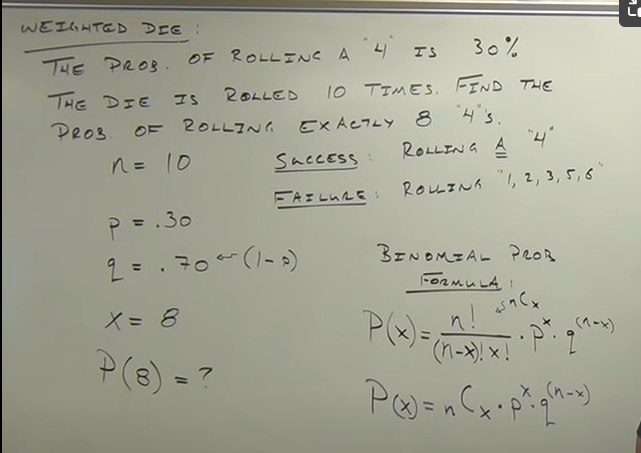 WEIGHTED DIE:
THE PROB. OF ROLLING A "4" IS 30%
THE DIE IS ROLLED 10 TIMES. FIND THE
PROB. OF ROLLING EXACTLY 8 "4"s.
n = 10
SUCCESS: ROLLING A "4"
FAILURE: ROLLING "1, 2, 3, 5, 6"
p = .30
q = .70 ← (1-p)
x = 8
P(8) = ?
BINOMIAL PROB
FORMULA:
P(x) = n! / (n-x)! x! · p^x · q^(n-x) ← nCx
P(x) = nCx · p^x · q^(n-x)